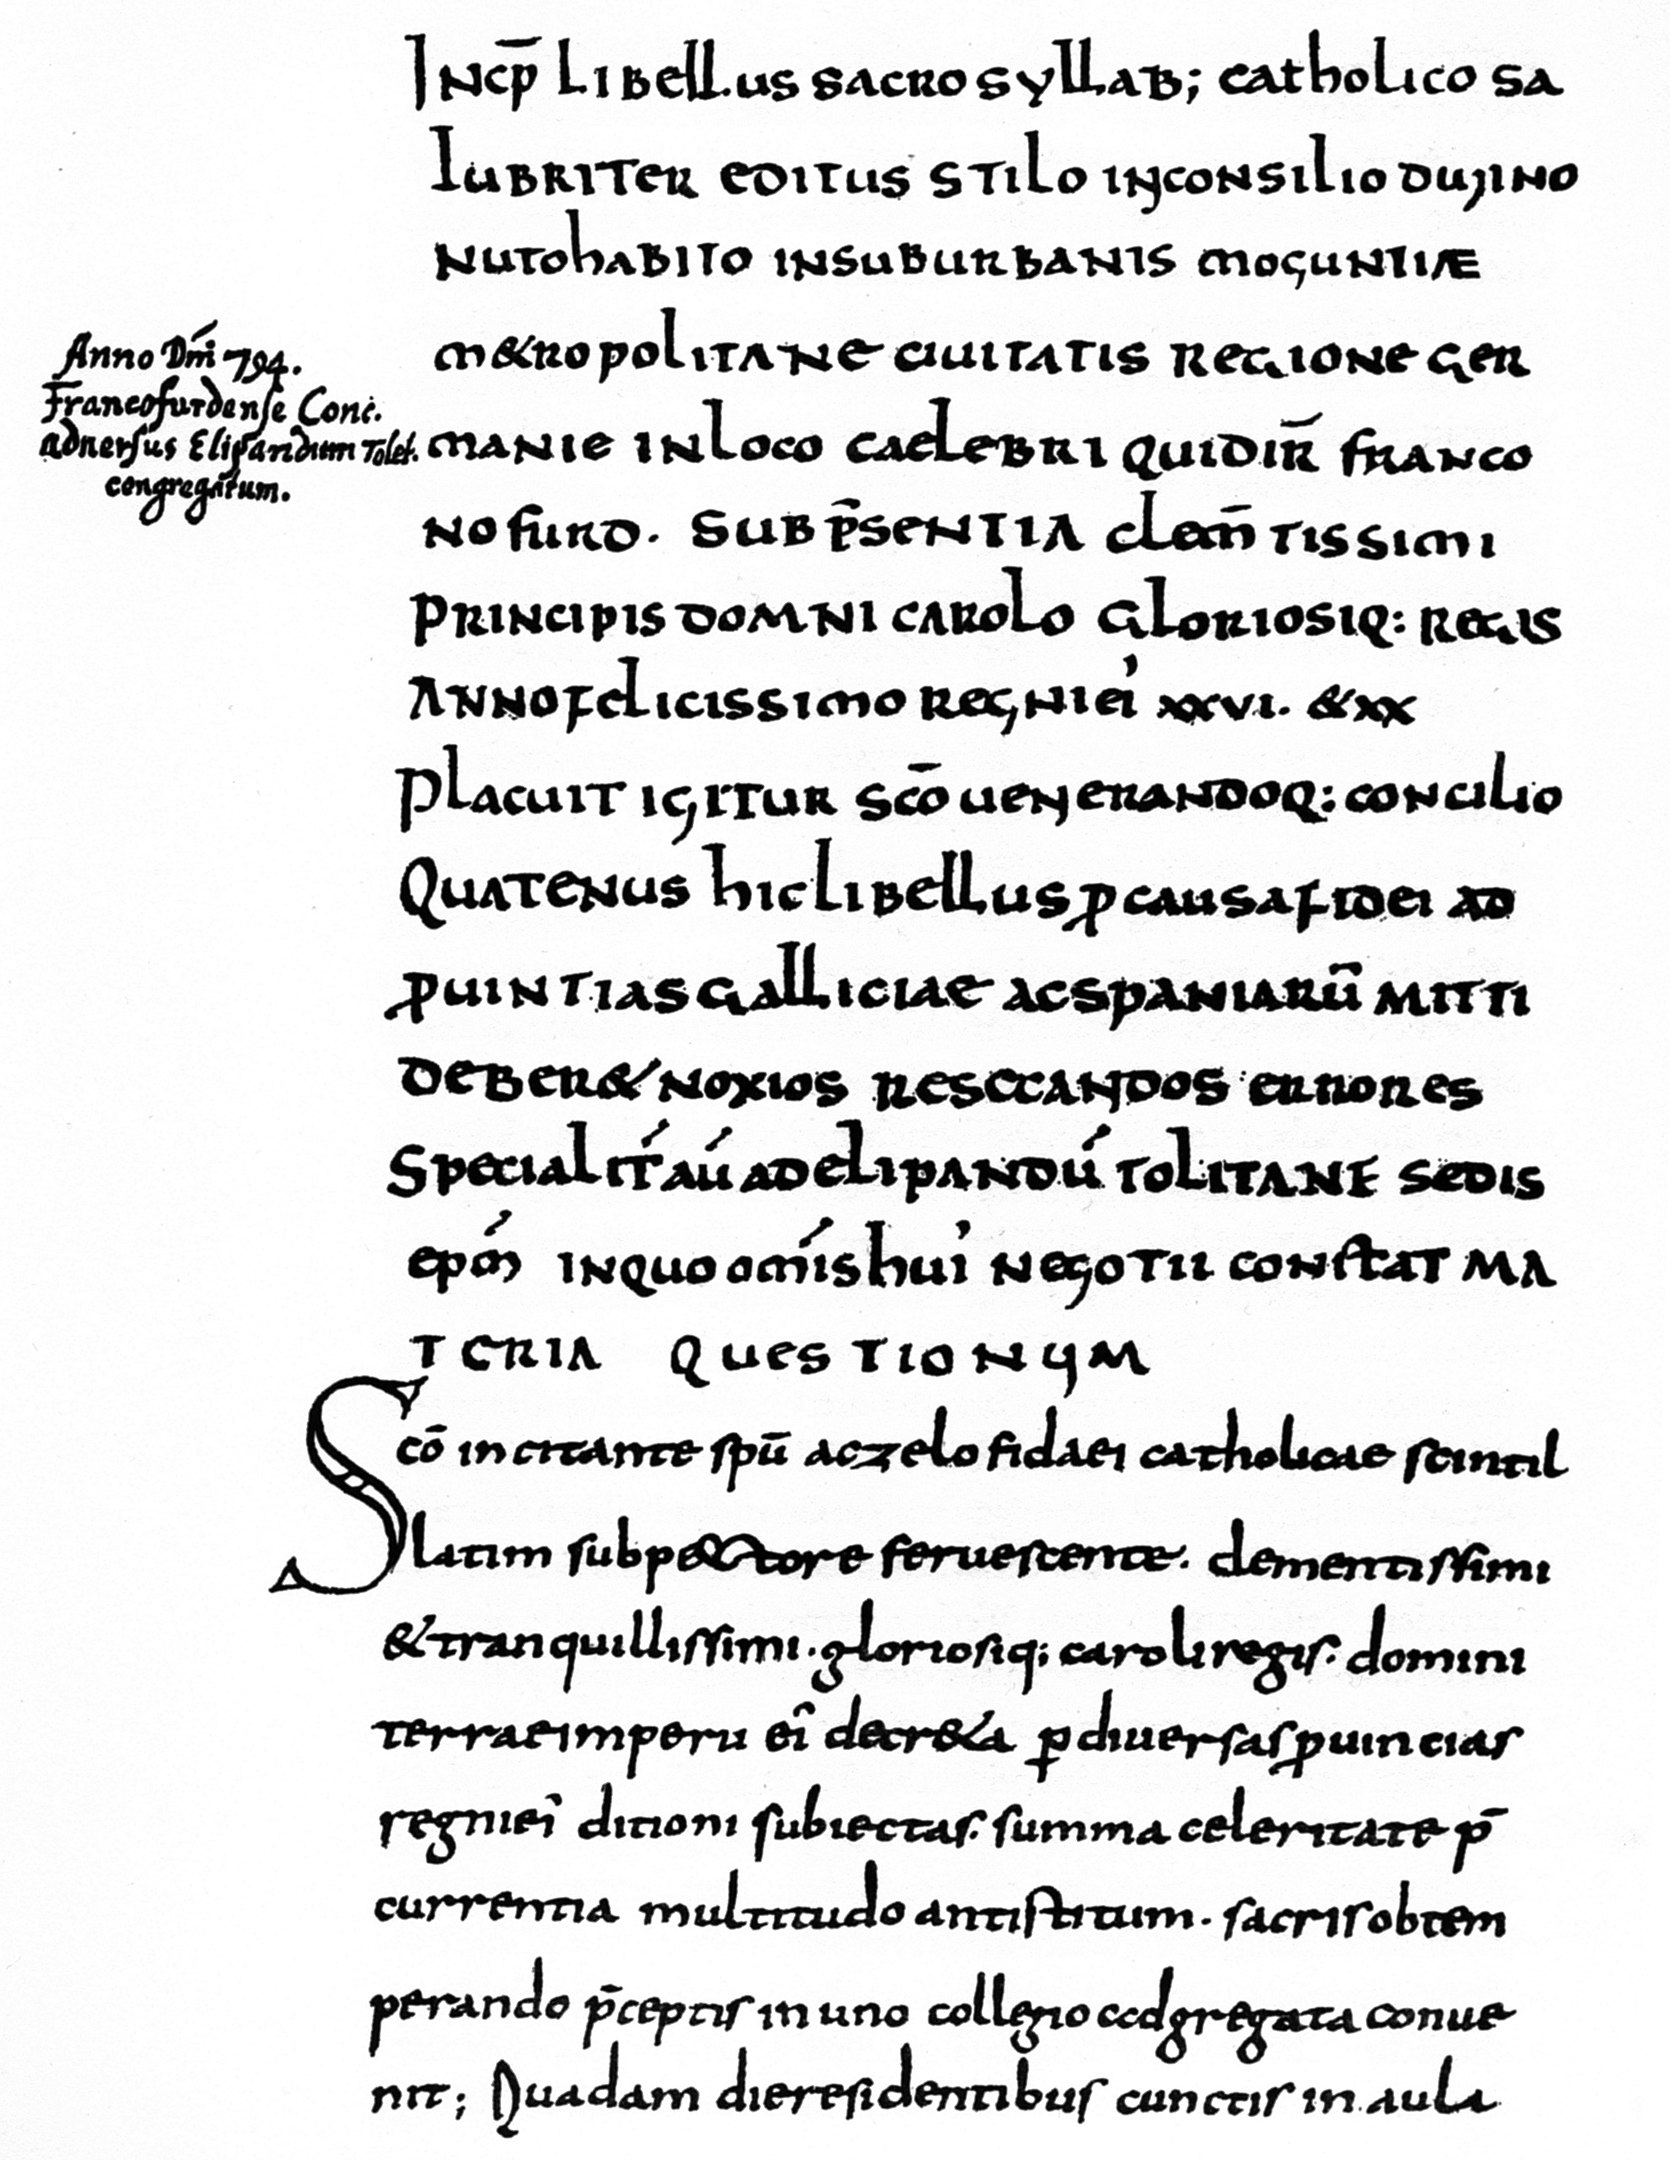 INCP̄ LIBELLUS SACROSYLLAB; CATHOLICO SA
LUBRITER EDITUS STILO INCONSILIO DIUINO
NUTOHABITO INSUBURBANIS MOGUNTIÆ
M&ROPOLITANE CIUITATIS REGIONE GER
MANIE INLOCO CAELEBRI QUIDIR̄ FRANCO
NOFURD. SUBP̄SENTIA CLEM̄TISSIMI
PRINCIPIS DOMNI CAROLO GLORIOSIQ: REGIS
ANNOFELICISSIMO REGNIEI' XXVI. &XX
PLACUIT IGITUR SC̄O UENERANDOQ: CONCILIO
QUATENUS HICLIBELLUS ꝓ CAUSAFIDEI AD
ꝓUINTIASGALLICIAE ACSPANIARŪ MITTI
DEBER& NOXIOS RESECANDOS ERRORES
SPECIALIT́ AÚ ADELIPANDÚ TOLITANE SEDIS
EPḾ INQUO OMÍS HUI' NEGOTII CONSTAT MA
TERIA QUESTIONUM
Anno Dm̄i 794.
Francofurdense Conc.
aduersus Elipandum Tolet.
congregatum.
Scō incitante sp̄u aczelo fidaei catholicae scintil
latim subpe&tore feruescente. clementissimi
&tranquillissimi. gloriosiq; caroli regis. domini
terrae imperii ei' decr&a ꝑ diuersas ꝓuincias
regniei' ditioni subiectas. summa celeritate p̄
currentia multitudo antistitum. sacris obtem
perando p̄ceptis in uno collegio adgregata conue
nit; Quadam dieresidentibus cunctis in aula